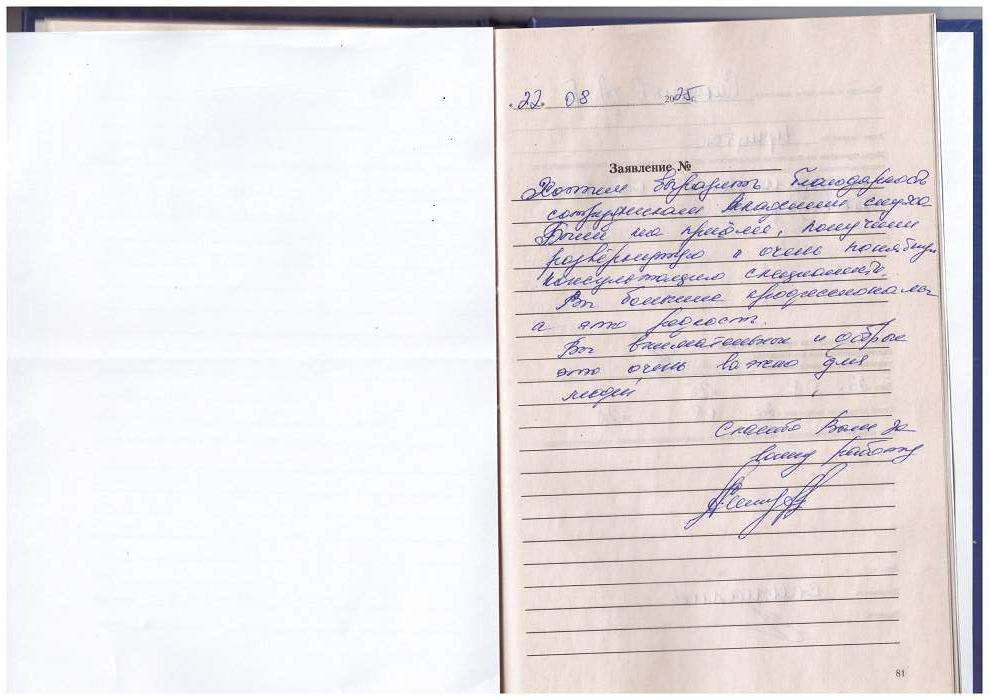 "22" 08 2025 г.
Заявление №
Хотим выразить благодарность
сотрудникам Академии слуха
Были на приёме, получили
развёрнутую и очень понятную
консультацию специалиста.
Вы большие профессионалы
а это редкость.
Вы внимательные и добрые
это очень важно для
людей
Спасибо Вам за
вашу работу
81